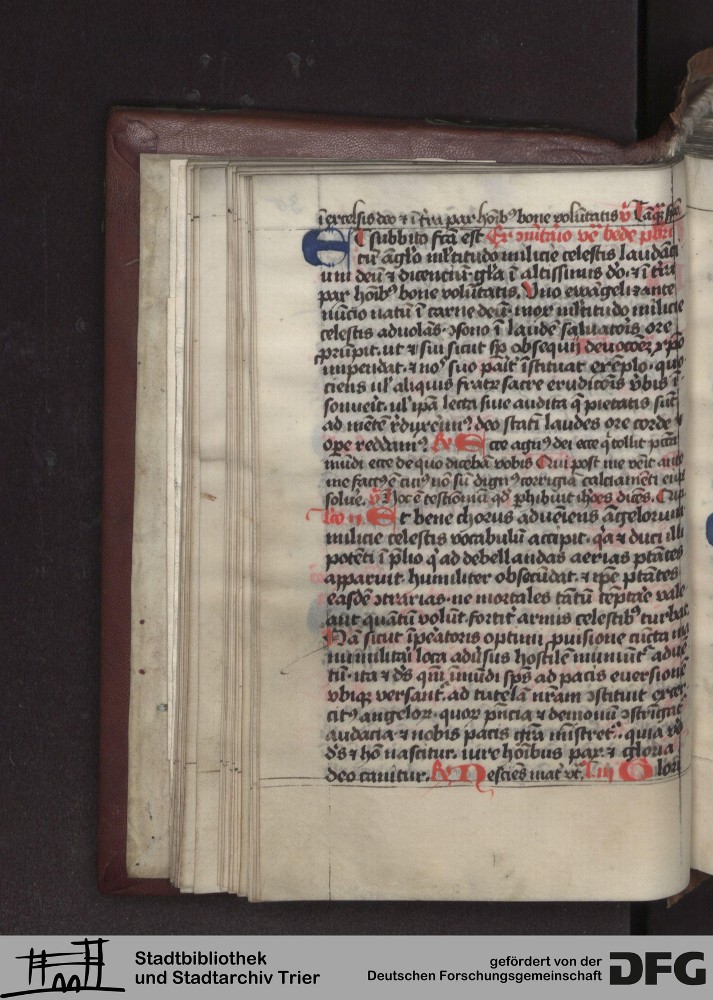 ī excelsis deo ⁊ ī t̄ra pax hoīb⁹ bone volūtatis
Et subbito fc̄ā est
cū āg̅lo ml̓titudo milicie celestis laudāci
um deū ⁊ dicenciū gl̅a ī altissimis dō ⁊ ī t̄ra
pax hoīb⁹ bone volūtatis. Vno ewāgelizante
nūcio natū ī carne deū mox ml̓titudo milicie
celestis advolās ꝯsono ī laudē saluatoris ore
prūpit. ut ⁊ sui sicut sp̄ obsequij deuocoēꝫ xp̄o
impendat ⁊ nos suo parit̄ īstituat exēplo quo
ciens ul̓ aliquis fratꝝ sacre erudicōis v̄bis ī
sonueīt ul̓ ip̄ā lecta siue audita q̄ pietatis sūt
ad mētē deo statī laudes ore corde ⁊
oꝑe reddam⁹ Ecce agn⁹ dei ecce q̓ tollit pc̄cā
mūdi ecce de quo dicebā vobis Qui post me veīt ante
me fact⁹ ē cui⁹ nō sū dign⁹ corrigiā calciamēti
solue. Hoc ē testīoniū qd̓ ꝑhibuit ioh̄es dicēs. Qui
Et bene chorus adueīens āgelorum
milicie celestis vocabulū accipit. q̓a ⁊ duci illi
potēti ī p̄lio q̓ ad debellandas aerias ptātes
apparuit humiliter obsecūdat ⁊ ip̄e ptātes
easdē ꝯtrarias ne mortales tātū tēptare vale
ant quātū volūt fortit̄ armis celestib⁹ turbat
Nā sicut īp̄eatoris optimi ꝓuisione cūcta
mil loca adūsus hostilē muniunt̄ adue
tū ita ⁊ d̄s qm̄ īmūdi sp̄s ad pacis euersionē
vbiqꝫ versant̄ ad tutelā nr̄am ꝯstituit exer
cit⁹ angeloꝝ. quoꝝ pn̄cia ⁊ demonū ꝯstrīgat̄
audacia ⁊ nobis pacis gr̄a mīstret̄. quia v̄o
d̄s ⁊ hō nascitur. iure hoībus pax ⁊ gloria
deo canitur. Nesciēs mat̄ Glori
Stadtbibliothek
und Stadtarchiv Trier
gefördert von der
Deutschen Forschungsgemeinschaft
DFG